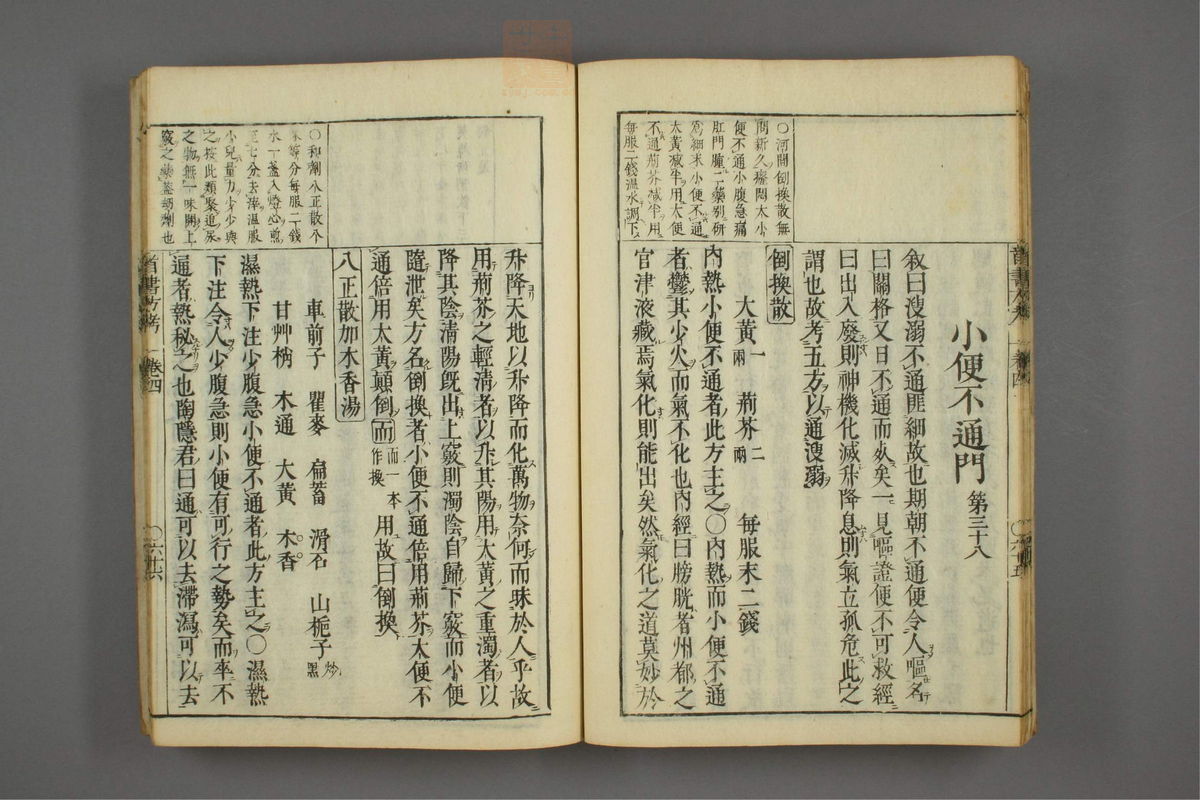 小便不通門 第三十八
叙曰溲溺不通匪細故也期朝不通便令人嘔名
曰關格又日不通而死矣一見嘔證便不可救經
曰出入廢則神機化滅升降息則氣立孤危此之
謂也故考五方以通溲溺
倒換散
大黃一兩 荊芥二兩 每服末二錢
內熱小便不通者此方主之○內熱而小便不通
者鬱其少火而氣不化也內經曰膀胱者州都之
官津液藏焉氣化則能出矣然氣化之道莫妙於
○河間倒換散無
問新久癃閉大小
便不通小腹急痛
肛門腫二藥別研
爲細末小便不通
大黃減半用大便
不通荊芥減半用
每服二錢溫水調下
升降天地以升降而化萬物奈何而昧於人乎故
用荊芥之輕清者以升其陽用大黃之重濁者以
降其陰清陽旣出上竅則濁陰自歸下竅而小便
隨泄矣方名倒換者小便不通倍用荊芥大便不
通倍用大黃顛倒而而一本作換用故曰倒換
八正散加木香湯
車前子 瞿麥 扁蓄 滑石 山梔子炒黑
甘艸梢 木通 大黃 木香
濕熱下注少腹急小便不通者此方主之○濕熱
下注令人少腹急則小便有可行之勢矣而卒不
通者熱秘之也陶隱君曰通可以去滯瀉可以去
○和劑八正散八
味等分每服二錢
水一盞入燈心煎
至七分去滓溫服
小兒量力少少與
之按此類聚逆尿
之物無一味開上
竅之藥蓋劫劑也
醫書方考 卷四
○六廿六